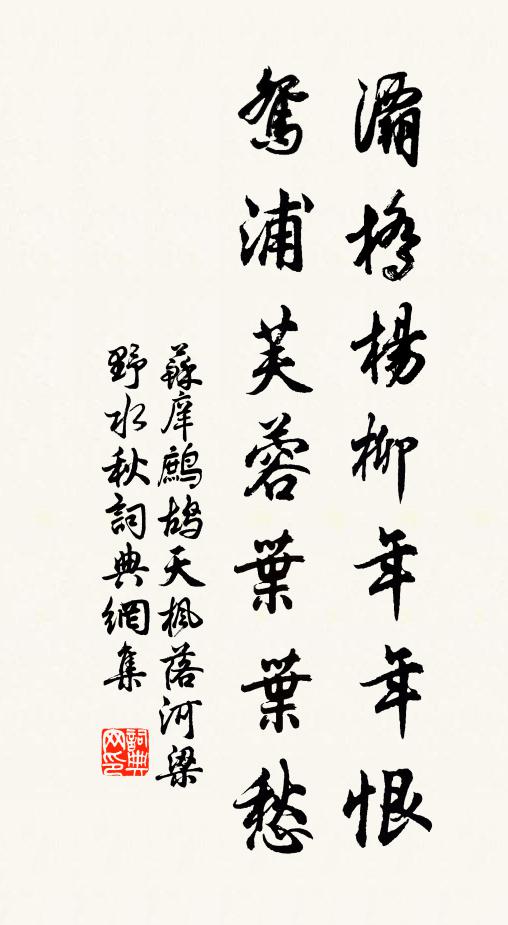 灞橋楊柳年年恨
鴛浦芙蓉葉葉愁
蘇庠鷓鴣天楓落河梁
野水秋詞典網集
詞典
网印